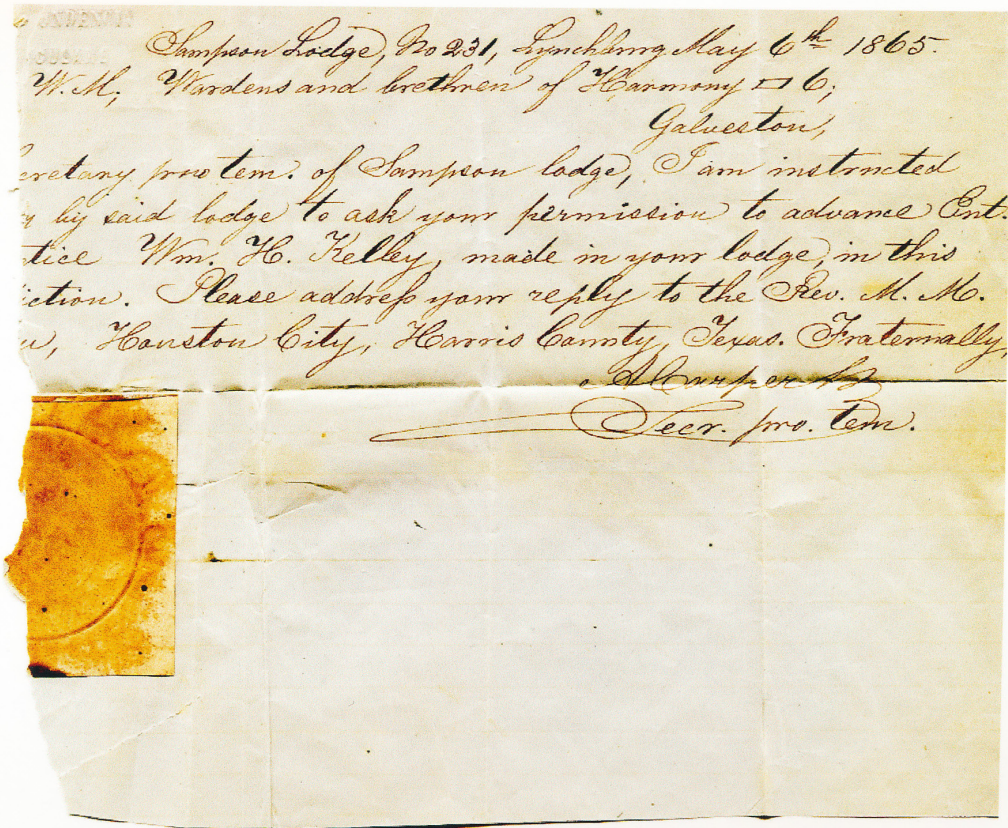 Sampson Lodge, No 231, Lynchburg May 6th 1865.
W. M; Wardens and brethren of Harmony ▭ 6;
Galveston,
eretary pro tem. of Sampson lodge, I am instructed
by said lodge to ask your permission to advance Ent.
tice Wm. H. Kelley, made in your lodge, in this
iction. Please address your reply to the Rev. M. M.
Houston City, Harris County, Texas. Fraternally
Secr. pro. tem.